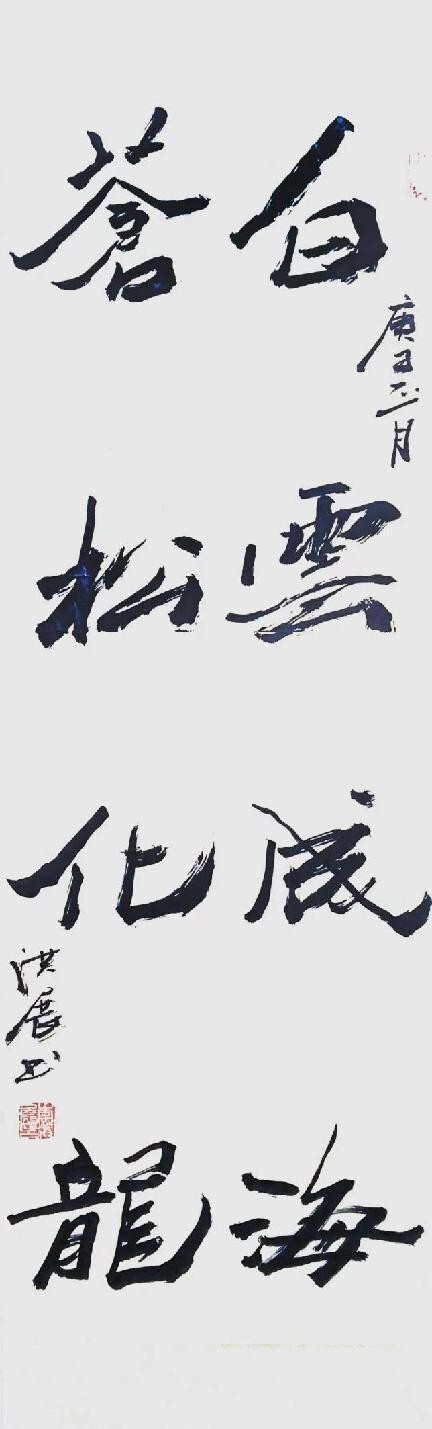 白雲成海
蒼松化龍
庚子正月
洪展书